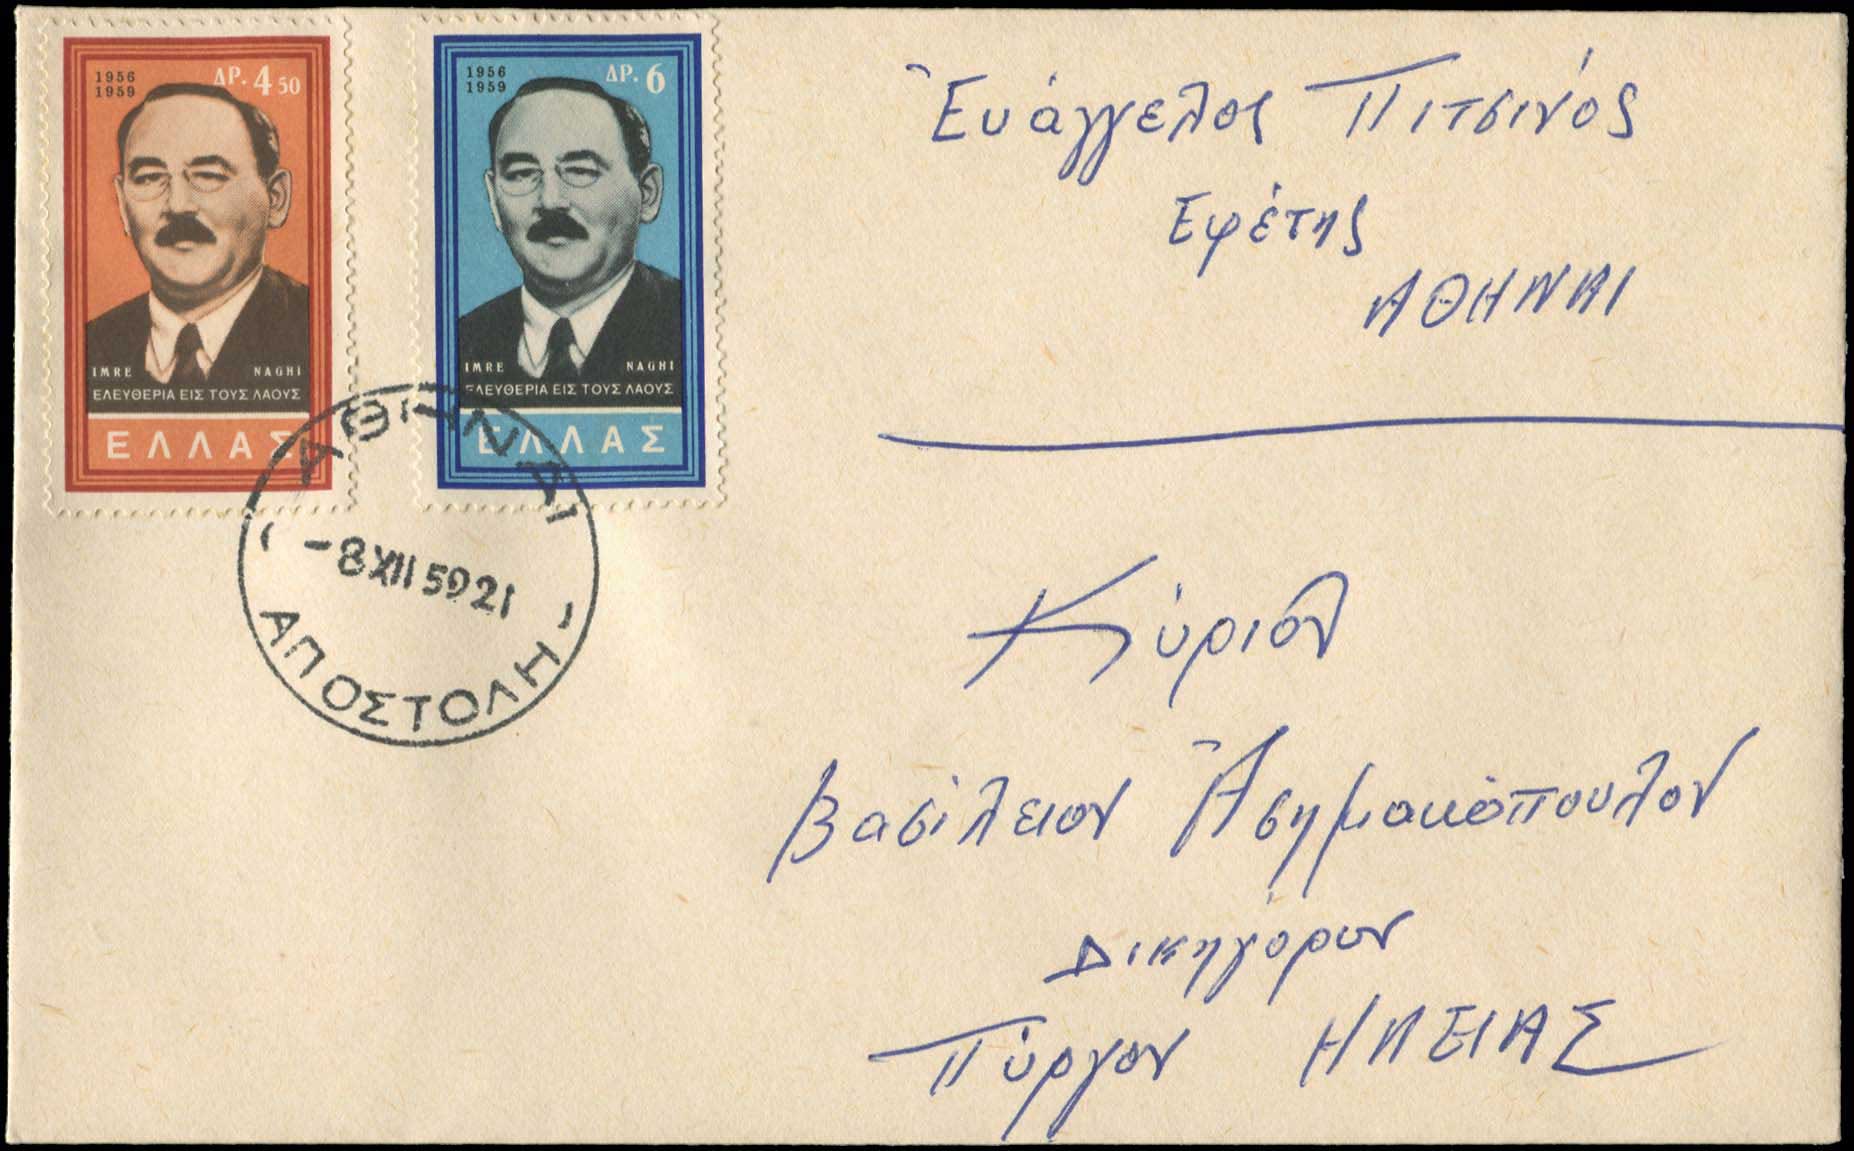 1956
1959
ΔΡ. 4 50
IMRE NAGHI
ΕΛΕΥΘΕΡΙΑ ΕΙΣ ΤΟΥΣ ΛΑΟΥΣ
ΕΛΛΑΣ
1956
1959
ΔΡ. 6
IMRE NAGHI
ΕΛΕΥΘΕΡΙΑ ΕΙΣ ΤΟΥΣ ΛΑΟΥΣ
ΕΛΛΑΣ
ΑΘΗΝΑΙ
-8 XII 59 21
ΑΠΟΣΤΟΛΗ
Ἐυάγγελος Πιτσινός
Εφέτης
ΑΘΗΝΑΙ
Κύριον
Βασίλειον Ἀσημακόπουλον
Δικηγόρον
Πύργον ΗΛΕΙΑΣ